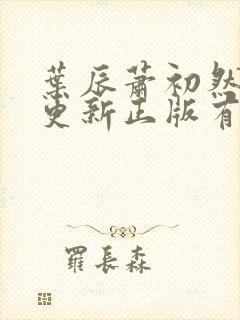 葉辰蕭初然
更新正版有
羅長森